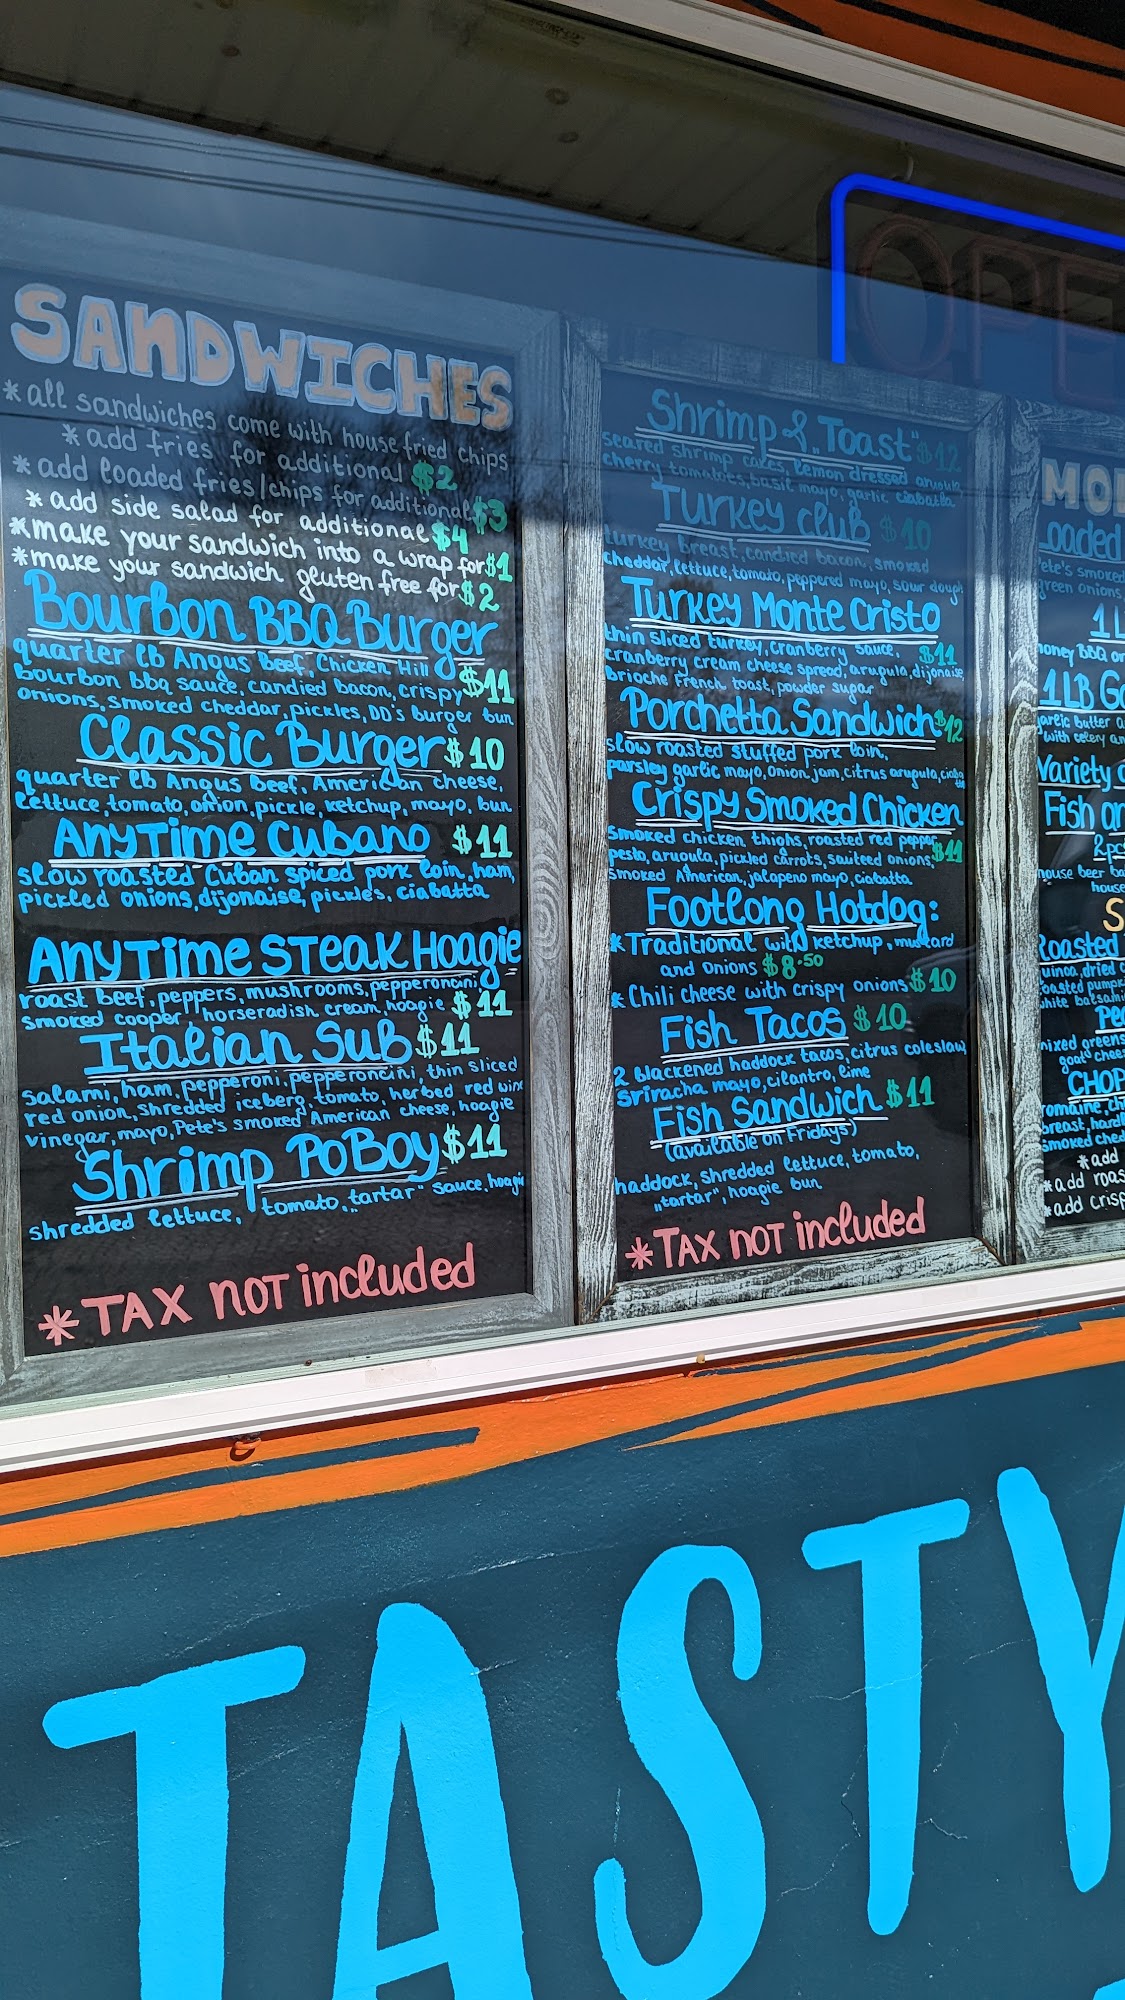 SANDWICHES
* all sandwiches come with house fried chips
* add fries for additional $2
* add loaded fries/chips for additional $3
* add side salad for additional $4
* make your sandwich into a wrap for $1
* make your sandwich gluten free for $2
Bourbon BBQ Burger
quarter lb Angus Beef, Chicken Hill
bourbon bbq sauce, candied bacon, crispy $11
onions, smoked cheddar, pickles, DD's burger bun
Classic Burger $10
quarter lb Angus Beef, American cheese,
lettuce, tomato, onion, pickle, ketchup, mayo, bun
AnyTime Cubano $11
slow roasted Cuban spiced pork loin, ham,
pickled onions, dijonaise, pickles, ciabatta
AnyTime Steak Hoagie
roast beef, peppers, mushrooms, pepperoncini,
smoked cooper, horseradish cream, hoagie $11
Italian Sub $11
salami, ham, pepperoni, pepperoncini, thin sliced
red onion, shredded iceberg, tomato, herbed red wine
vinegar, mayo, Pete's smoked American cheese, hoagie
Shrimp PoBoy $11
shredded lettuce, tomato, „tartar" sauce, hoagie
* TAX not included
Shrimp & „Toast" $12
seared shrimp cakes, lemon dressed arugula
cherry tomatoes, basil mayo, garlic ciabatta
Turkey club $10
turkey breast, candied bacon, smoked
cheddar, lettuce, tomato, peppered mayo, sour dough
Turkey Monte Cristo
thin sliced turkey, cranberry sauce, $11
cranberry cream cheese spread, arugula, dijonaise
brioche french toast, powder sugar
Porchetta Sandwich $12
slow roasted stuffed pork loin,
parsley garlic mayo, onion jam, citrus arugula, ciabatta
Crispy Smoked Chicken
smoked chicken thighs, roasted red pepper
pesto, aruoula, pickled carrots, sauteed onions, $11
smoked American, jalapeno mayo, ciabatta
Footlong Hotdog:
* Traditional with ketchup, mustard
and onions $8.50
* Chili cheese with crispy onions $10
Fish Tacos $10
2 blackened haddock tacos, citrus coleslaw
sriracha mayo, cilantro, lime
Fish Sandwich $11
(available on Fridays)
haddock, shredded lettuce, tomato,
„tartar", hoagie bun
* TAX not included
OPE
MO
Loaded
Pete's smoked
green onions
1L
honey BBQ or
1LB Ga
garlic butter a
with celery an
Variety
Fish an
2pcs
house beer ba
house
S
Roasted
quinoa, dried
roasted pumpk
white balsami
Pe
mixed greens
goat chees
CHOP
romaine, ch
breast, hard
smoked ched
* add
* add roas
* add crisp
TASTY